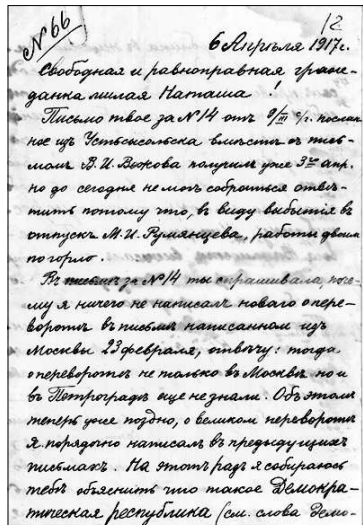 №66
12
6 Апрѣля 1917 г.
Свободная и равноправная граж-
данка милая Наташа!
Письмо твое за №14 отъ 9/III с/г. послан-
ное изъ Устьсысольска вмѣстѣ съ пись-
момъ В. И. получилъ уже 3го апр.
но до сегодня не могъ собраться отвѣ-
тить потому что, въ виду выбытія въ
отпускъ М. И. Румянцева, работы двоимъ
по горло.
Въ письмѣ за №14 ты спрашивала, поче-
му я ничего не написалъ новаго о пере-
воротѣ въ письмѣ написанномъ изъ
Москвы 23 февраля, отвѣчу: тогда
о переворотѣ не только въ Москвѣ но и
въ Петроградѣ еще не знали. Объ этомъ
теперь уже поздно, о великомъ переворотѣ
я порядочно написалъ въ предыдущихъ
письмахъ. На этотъ разъ я собираюсь
тебѣ объяснить что такое Демокра-
тическая республика (см. слова Демо-